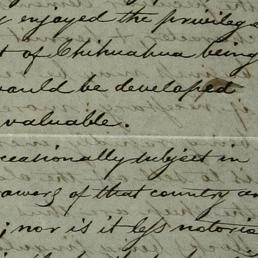 enjoyed the privilege
of Chihuahua being
would be developed
valuable.
occasionally subject in
of that country
; nor is it less notorio